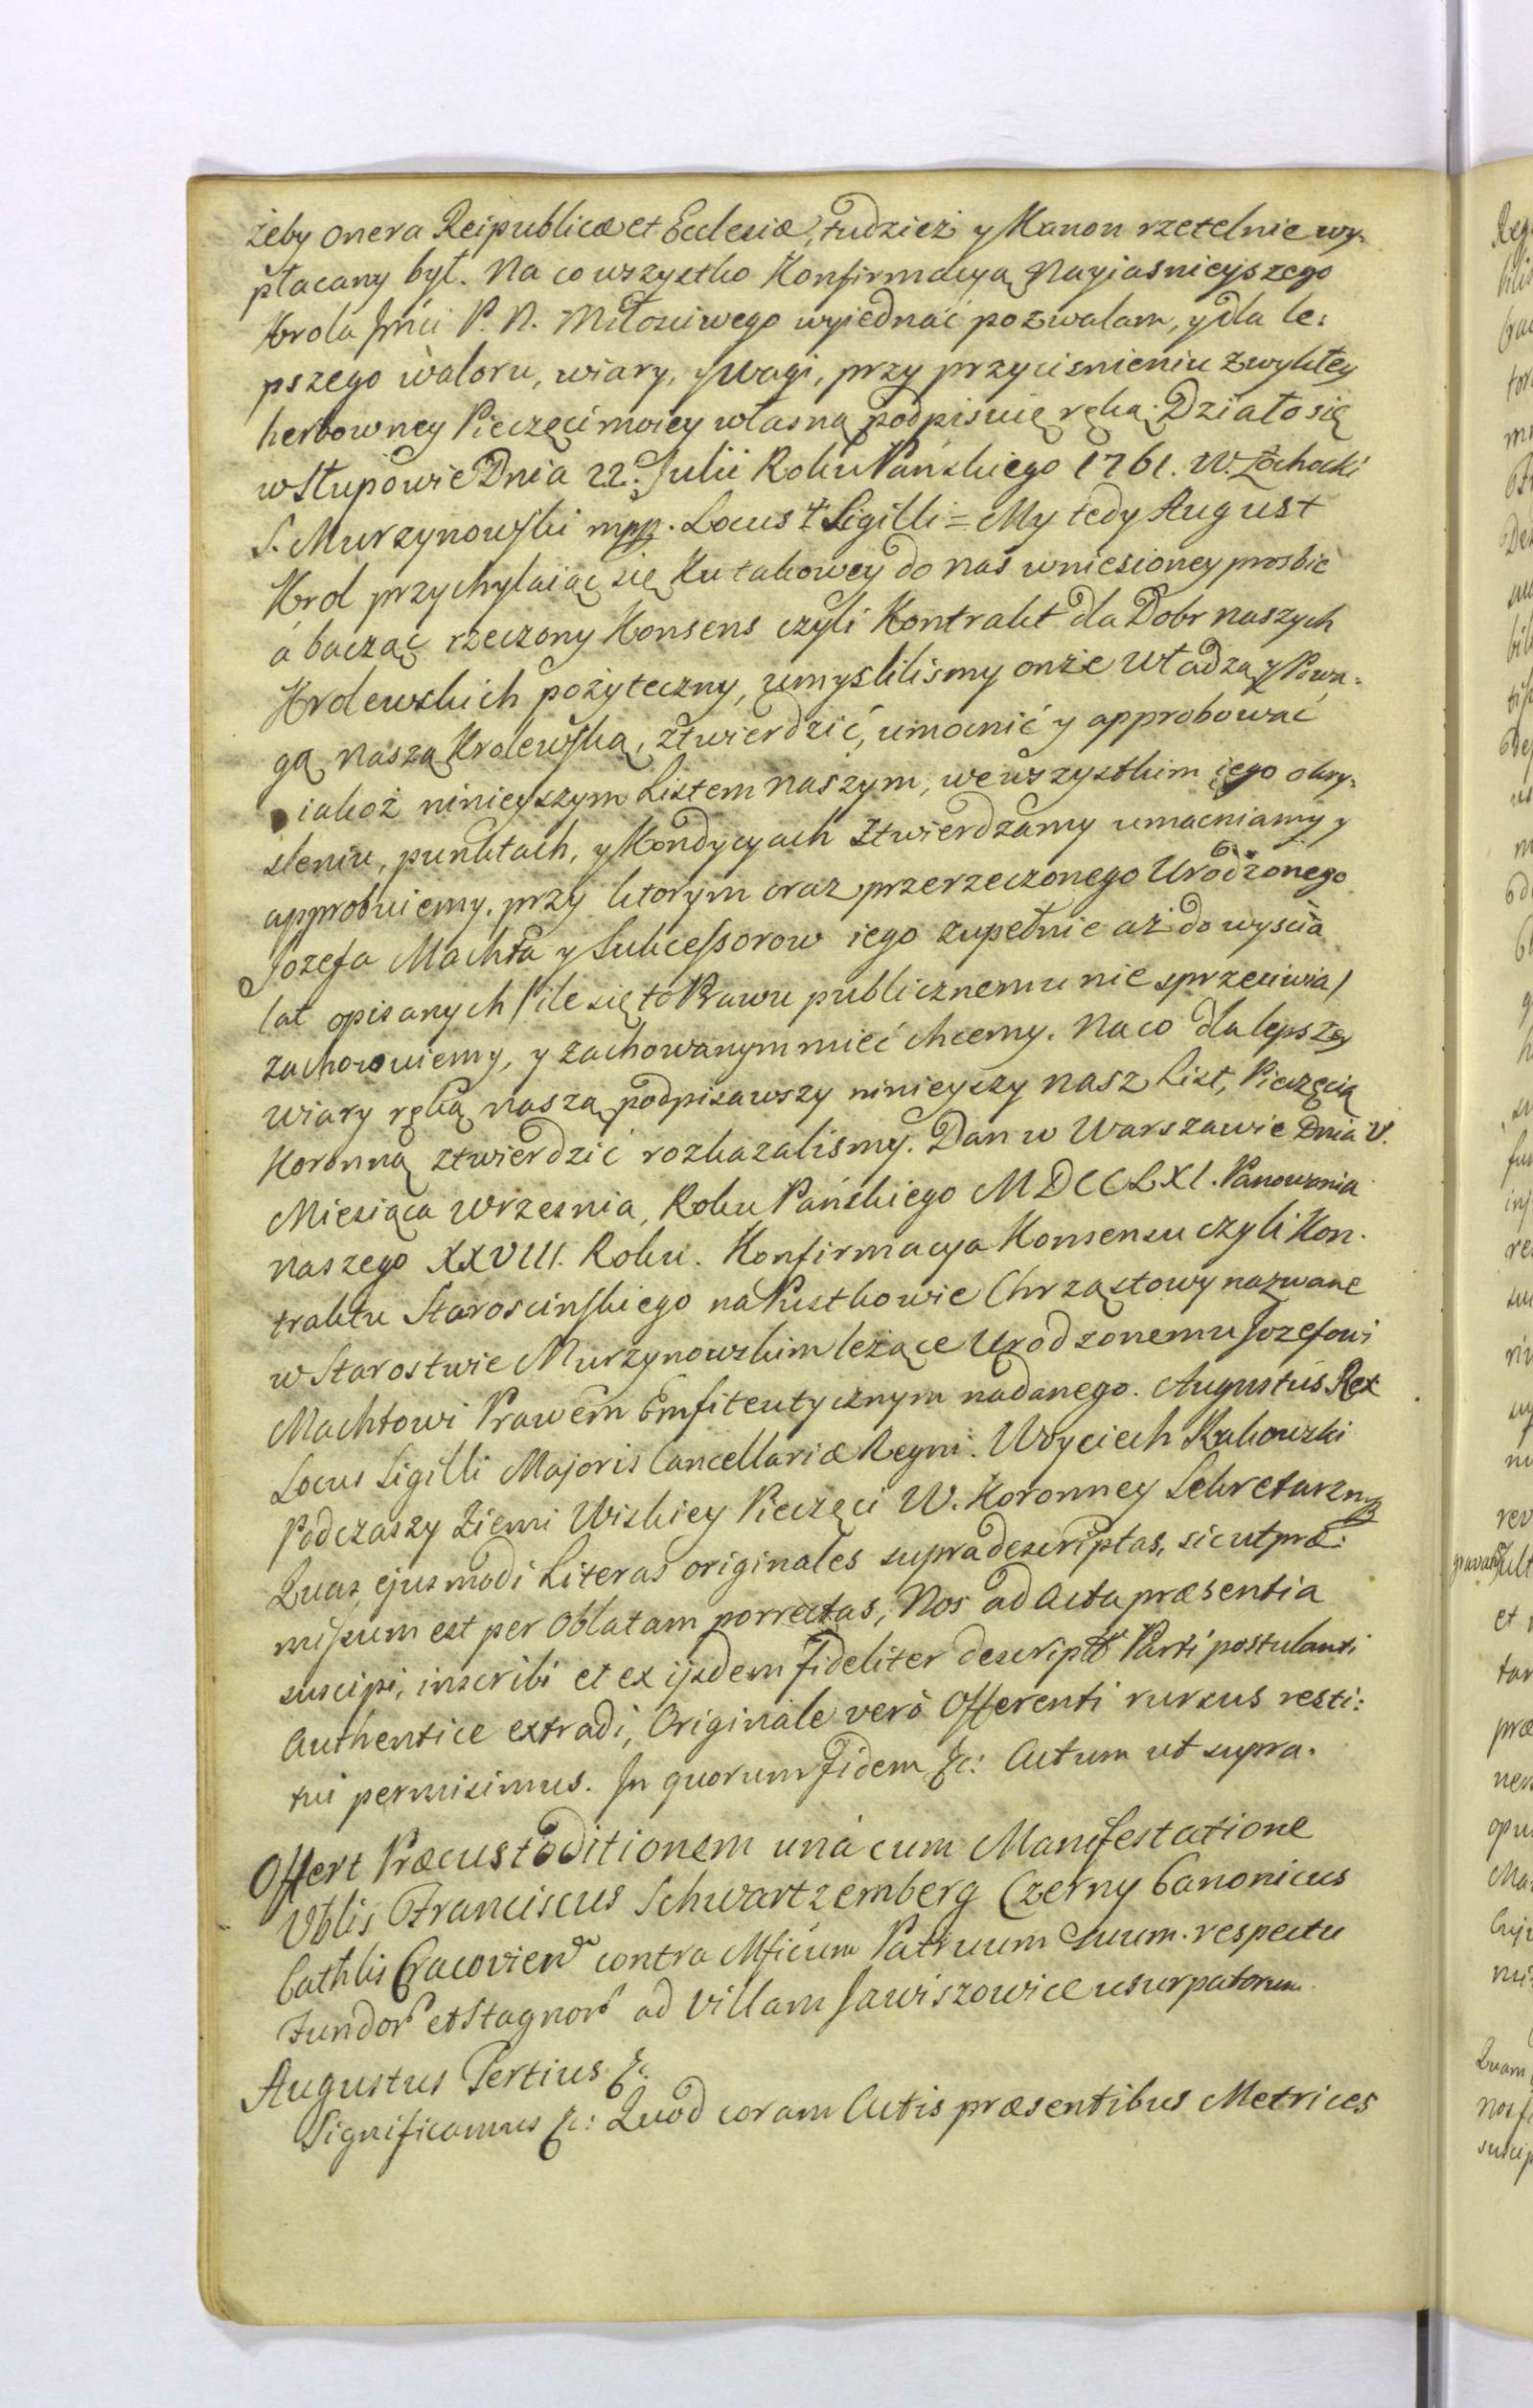 żeby onera Reipublicæ et Ecclesiæ, tudzież y Kanon rzetelnie wy-
płacany był. Na co wszystko Konfirmacyą Nayiasnieyszego
Krola Jmći P. N. Miłosciwego wyiednać pozwalam, y dla le:
pszego waloru, wiary, y wagi, przy przycisnieniu zwykłey
herbowney Pieczęci moiey własną podpisuię ręką. Działo się
w Słupowie Dnia 22. Julii Roku Pańskiego 1761. W. Zochocki
S. Murzynowski mpp. Locus † Sigilli = My tedy August
Krol przychylaiąc się Ku takowey do nas wniesioney prosbie
á bacząc rzeczony Konsens czyli Kontrakt dla Dobr naszych
Krolewskich pożyteczny, umyslilismy onże Władzą y Powa-
gą Naszą Krolewską, ztwierdzić, umocnić y approbować
iakoż ninieyszym Listem naszym, we wszystkim iego okry-
sleniu, punktach, y Kondycyach ztwierdzamy umacniamy y
approbuiemy. przy ktorym oraz przerzeczonego Urodzonego
Jozefa Machta y Sukcessorow iego zupełnie aż do wyscia
lat opisanych / ile się to Prawu publicznemu nie sprzeciwia /
zachowuiemy, y zachowanym mieć chcemy. Na co dla lepszey
wiary ręką naszą podpisawszy ninieyszy nasz List, Pieczęcią
Koronną ztwierdzić rozkazalismy. Dan w Warszawie Dnia V.
Miesiąca Wrzesnia, Roku Pańskiego MDCCLXI. Panowania
naszego XXVIII. Roku. Konfirmacya Konsensu czyli Kon-
traktu Staroscinskiego na Pustkowie Chrząstowy nazwane
w Starostwie Murzynowskim leżące Urodzonemu Jozefowi
Machtowi Prawem Emfiteutycznym nadanego. Augustus Rex
Locus Sigilli Majoris Cancellariæ Regni. Woyciech Rakowski
Podczaszy Ziemi Wiskiey Pieczęci W. Koronney Sekretarz mp
Quas ejusmodi Literas originales supradescriptas, sicut præ:
missum est per Oblatam porrectas, Nos ad Acta præsentia
suscipi, inscribi et ex ijsdem fideliter descriptas Parti postulanti
Authentice extradi, Originale verò Offerenti rursus resti:
tui permisimus. In quorum Fidem &c: Actum ut supra.
Offert Præcustoditionem unà cum Manifestatione
Vblis Franciscus Schwartzemberg Czerny Canonicus
Cathlis Cracovien contra Mficum Patruum suum. respectu
Fundor et Stagnor ad Villam Jawiszowice usurpatorum
Augustus Tertius &c.
Significamus &c: Quod coram Actis præsentibus Metrices